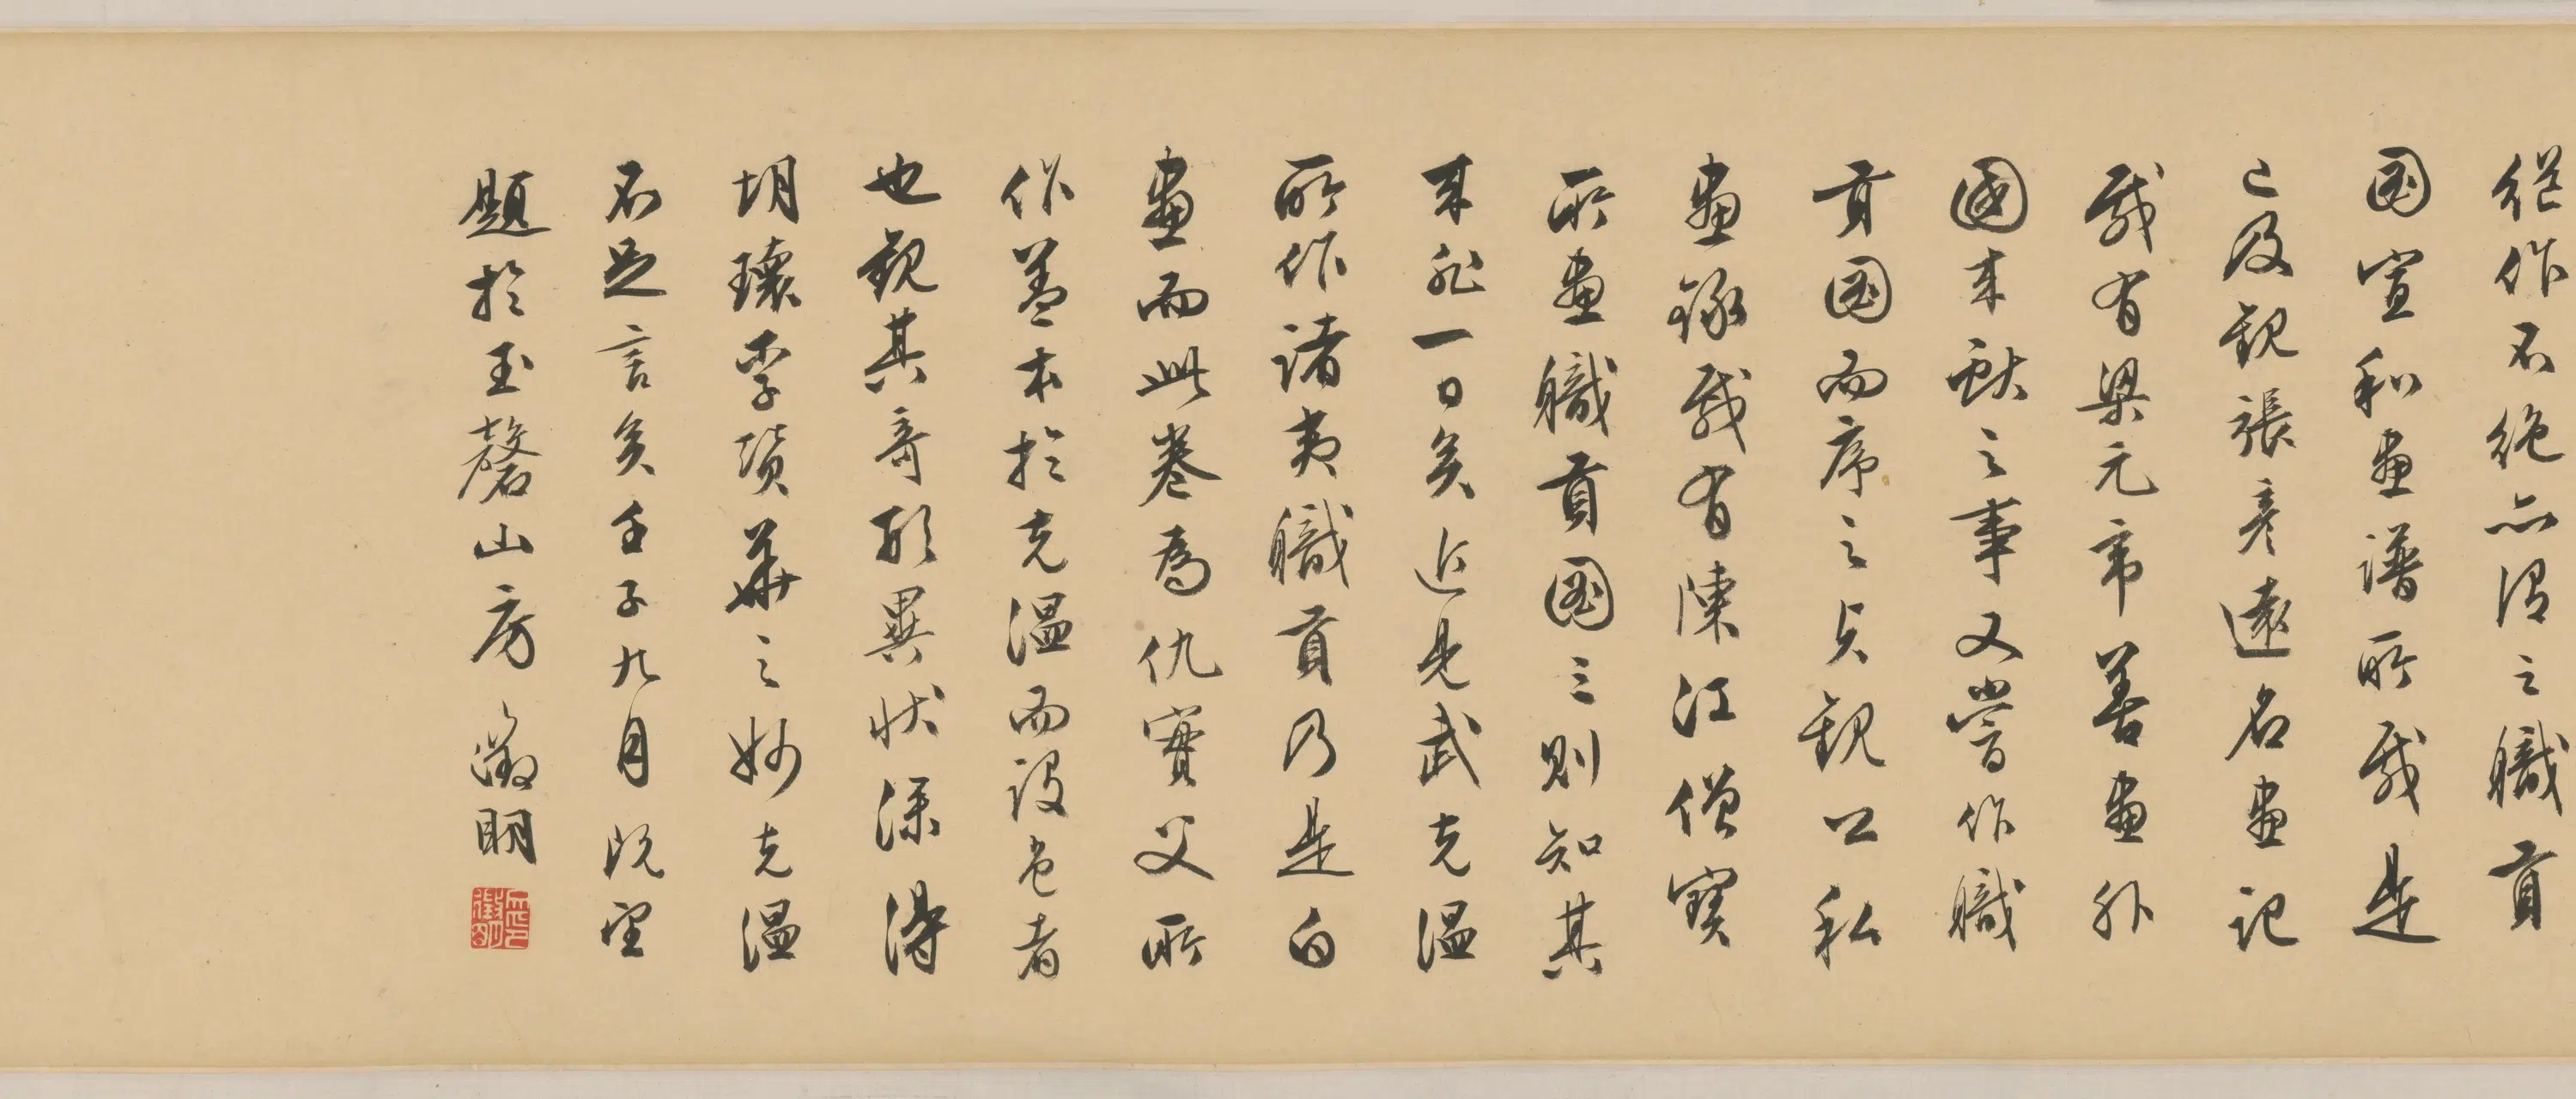 繼作不絕亦謂之職貢
圖宣和畫譜所載是
已及觀張彥遠名畫記
載有梁元帝善畫外
國來獻之事又嘗作職
貢圖而序之貞觀公私
畫錄載有陳江僧寶
所畫職貢圖三則知其
來非一日矣近見武克溫
所作諸夷職貢乃是白
畫而此卷為仇實父所
作蓋本於克溫而設色者
也觀其奇形異狀深得
胡瓌李贊華之妙克溫
不足言矣壬子九月既望
題於玉磬山房徵明